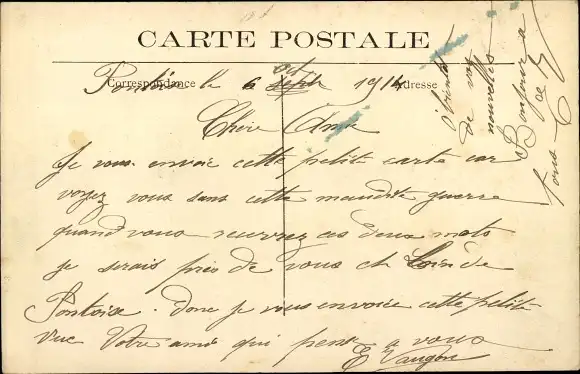 CARTE POSTALE
Correspondance
Adresse
Pontoise le 6 oct 1914
Chère Amie
Je vous envoie cette petite carte car
voyez vous sans cette maudite guerre
quand vous recevrez ces deux mots
je serais près de vous et loin de
Pontoise. Donc je vous envoie cette petite
vue Votre ami qui pense a vous
E Vaugon
de vos
nouvelles
Bonjour a
tous